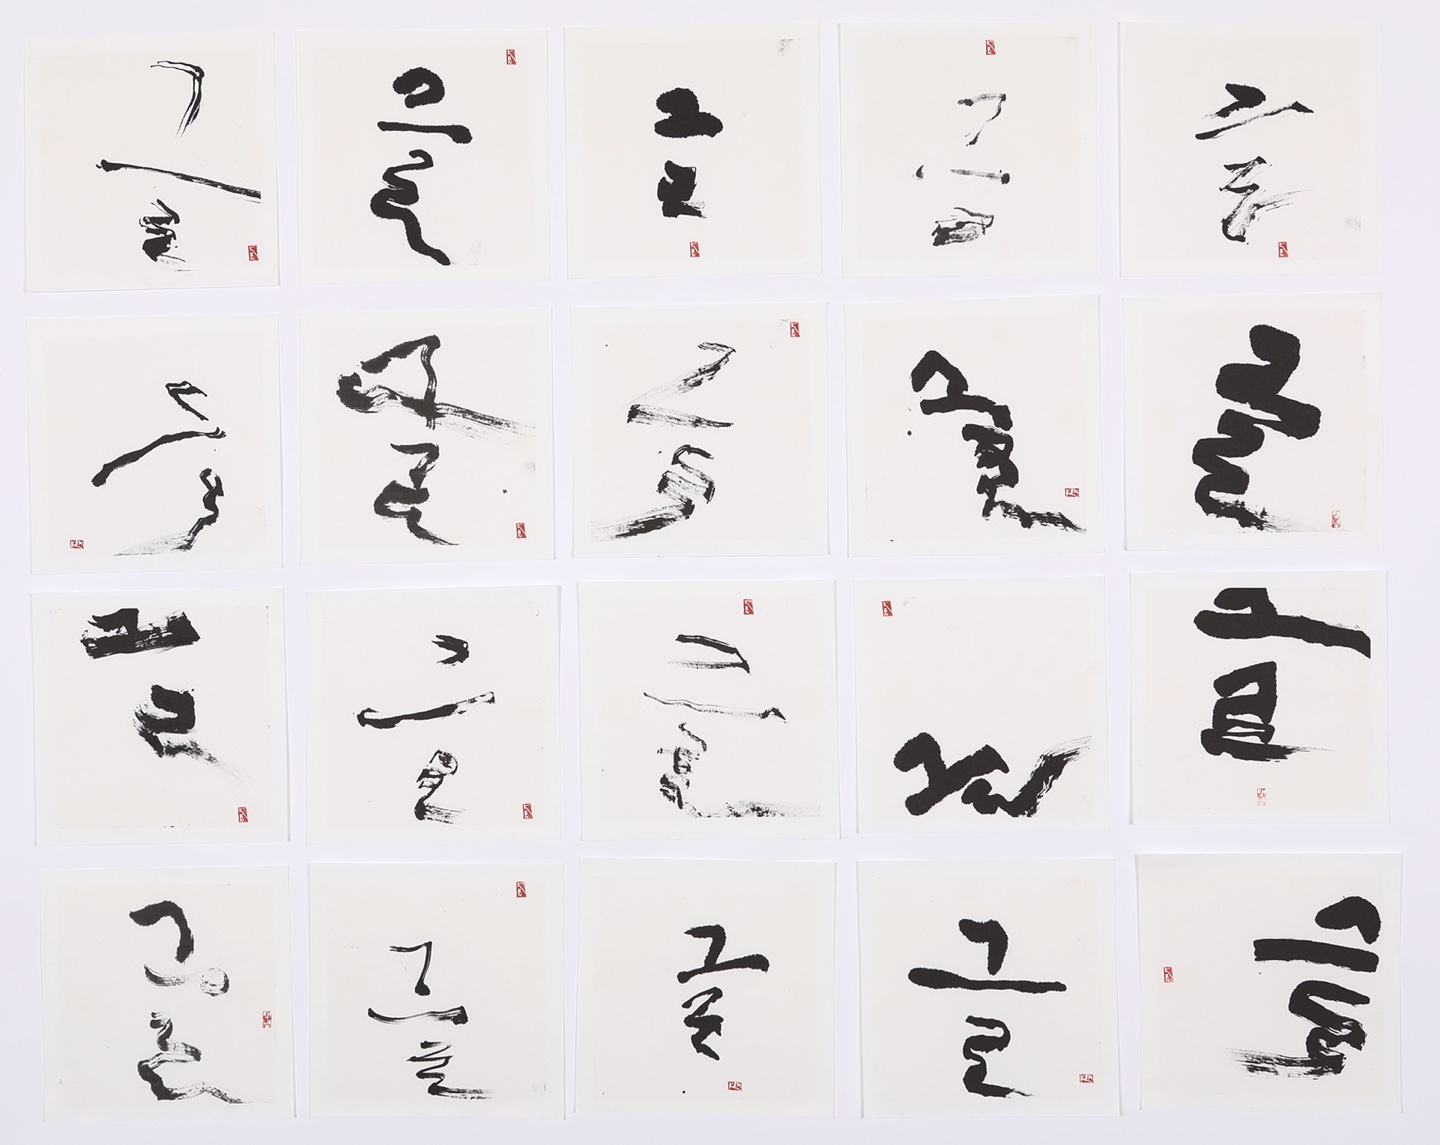 글 글 글 글 글
글 글 글 글 글
글 글 글 글 글
글 글 글 글 글